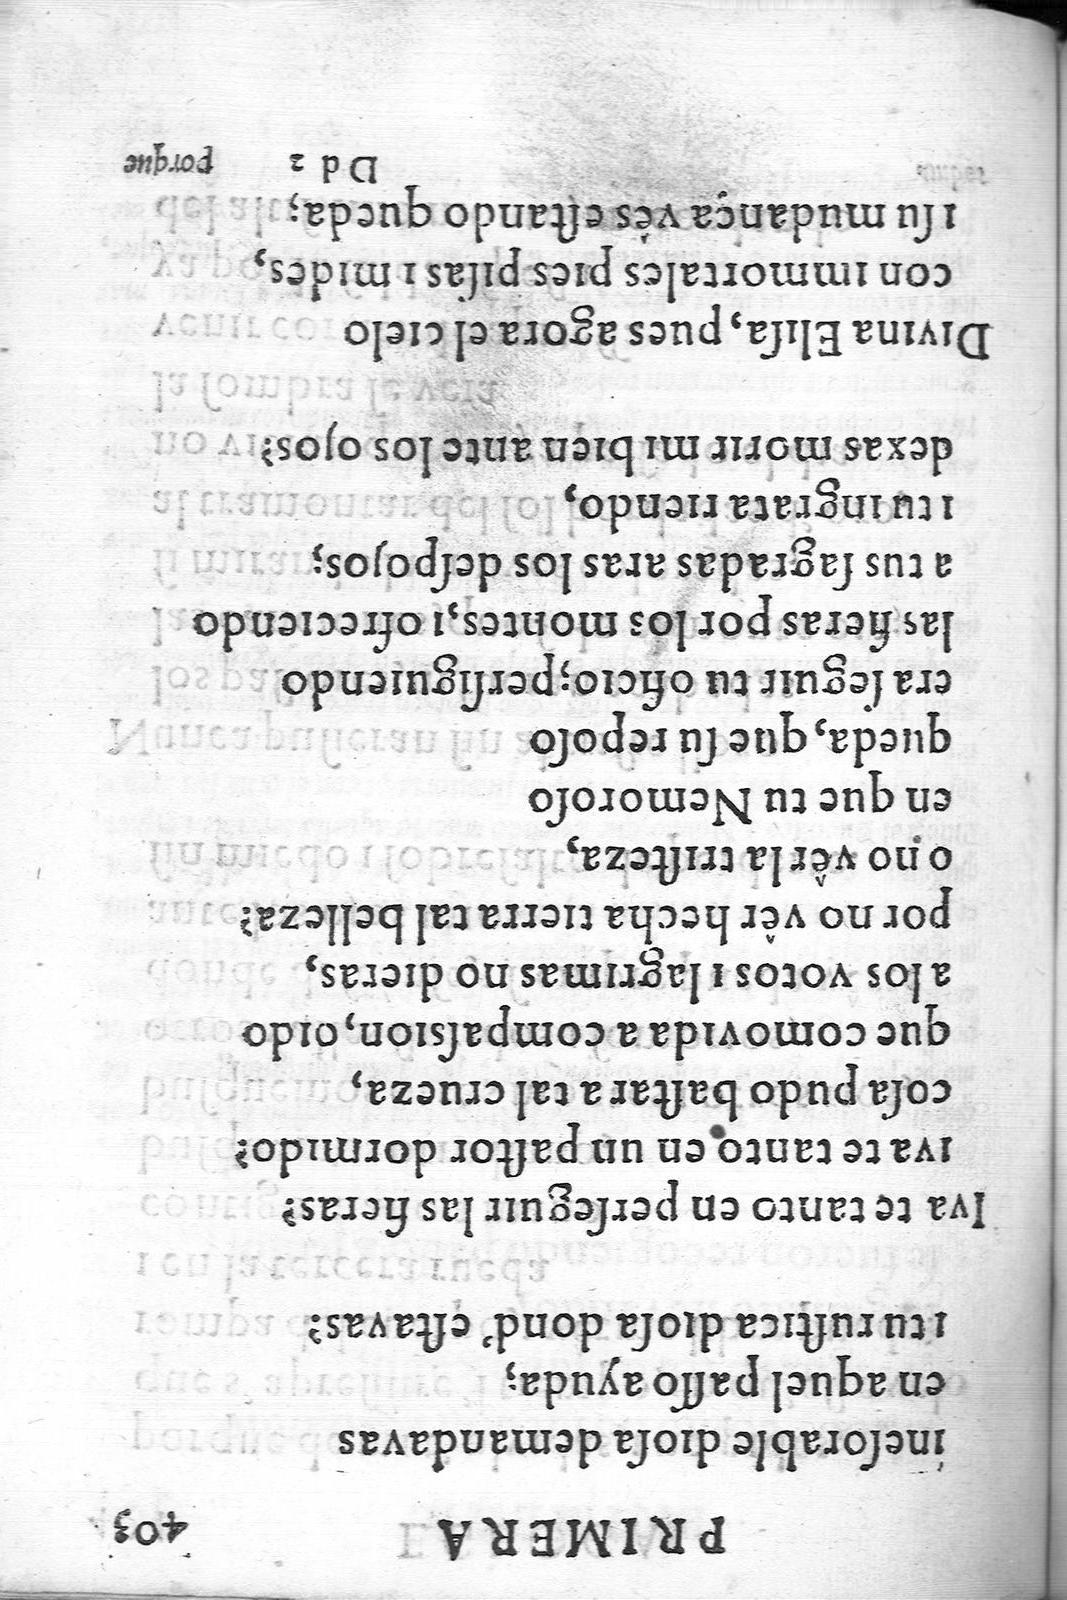 PRIMERA 403
ineſorable dioſa demandavas
en aquel paſſo ayuda;
i tu ruſtica dioſa dond' eſtavas?
Iva te tanto en perſeguir las fieras?
iva te tanto en un paſtor dormido?
coſa pudo baſtar a tal crueza,
que comovida a compaſsion, oido
a los votos i lagrimas no dieras,
por no vêr hecha tierra tal belleza?
o no vêr la triſteza,
en que tu Nemoroſo
queda, que ſu repoſo
era ſeguir tu oficio; perſiguiendo
las fieras por los montes, i ofreciendo
a tus ſagradas aras los deſpojos;
i tu ingrata riendo,
dexas morir mi bien ante los ojos?
Divina Eliſa, pues agora el cielo
con immortales pies piſas i mides,
i ſu mudança vés eſtando queda;
Dd 2 porque